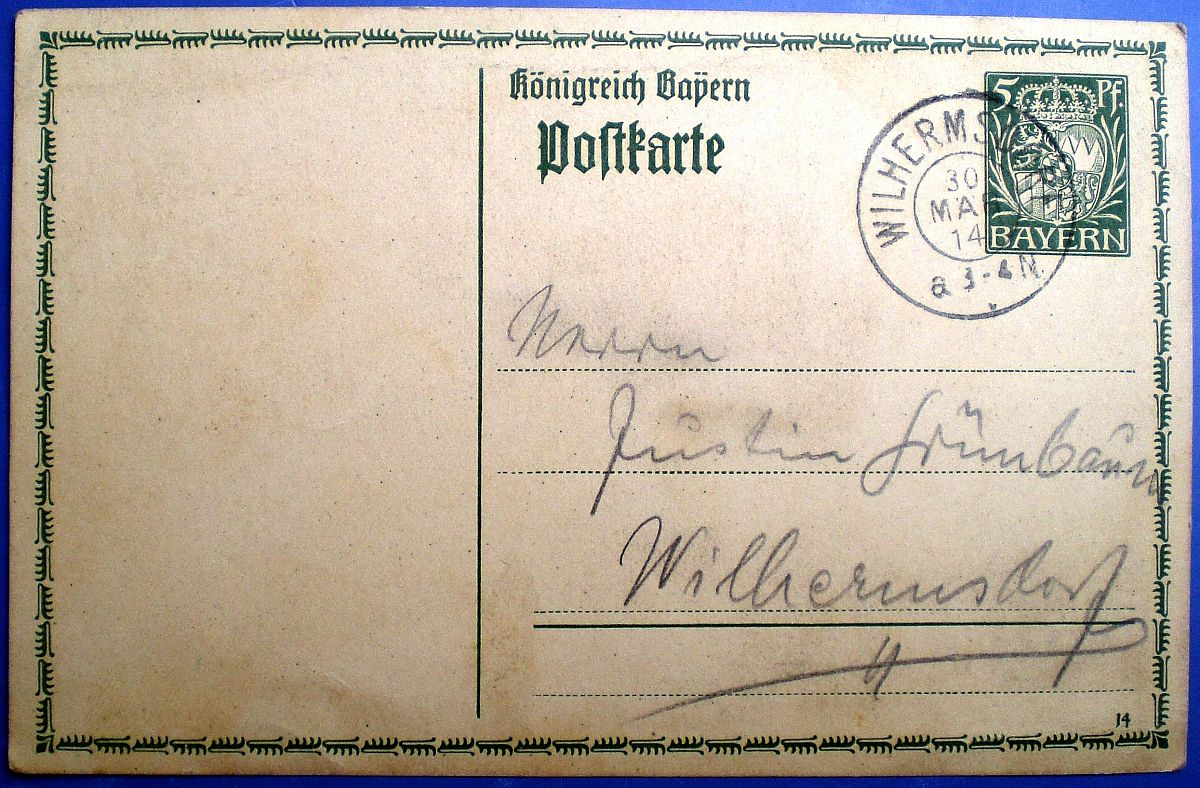 Königreich Bayern
Postkarte
5 Pf.
BAYERN
WILHERMSDORF
30
MAR
14
a 3-4 N.
Herrn
Justin Grünbaum
Wilhermsdorf
14